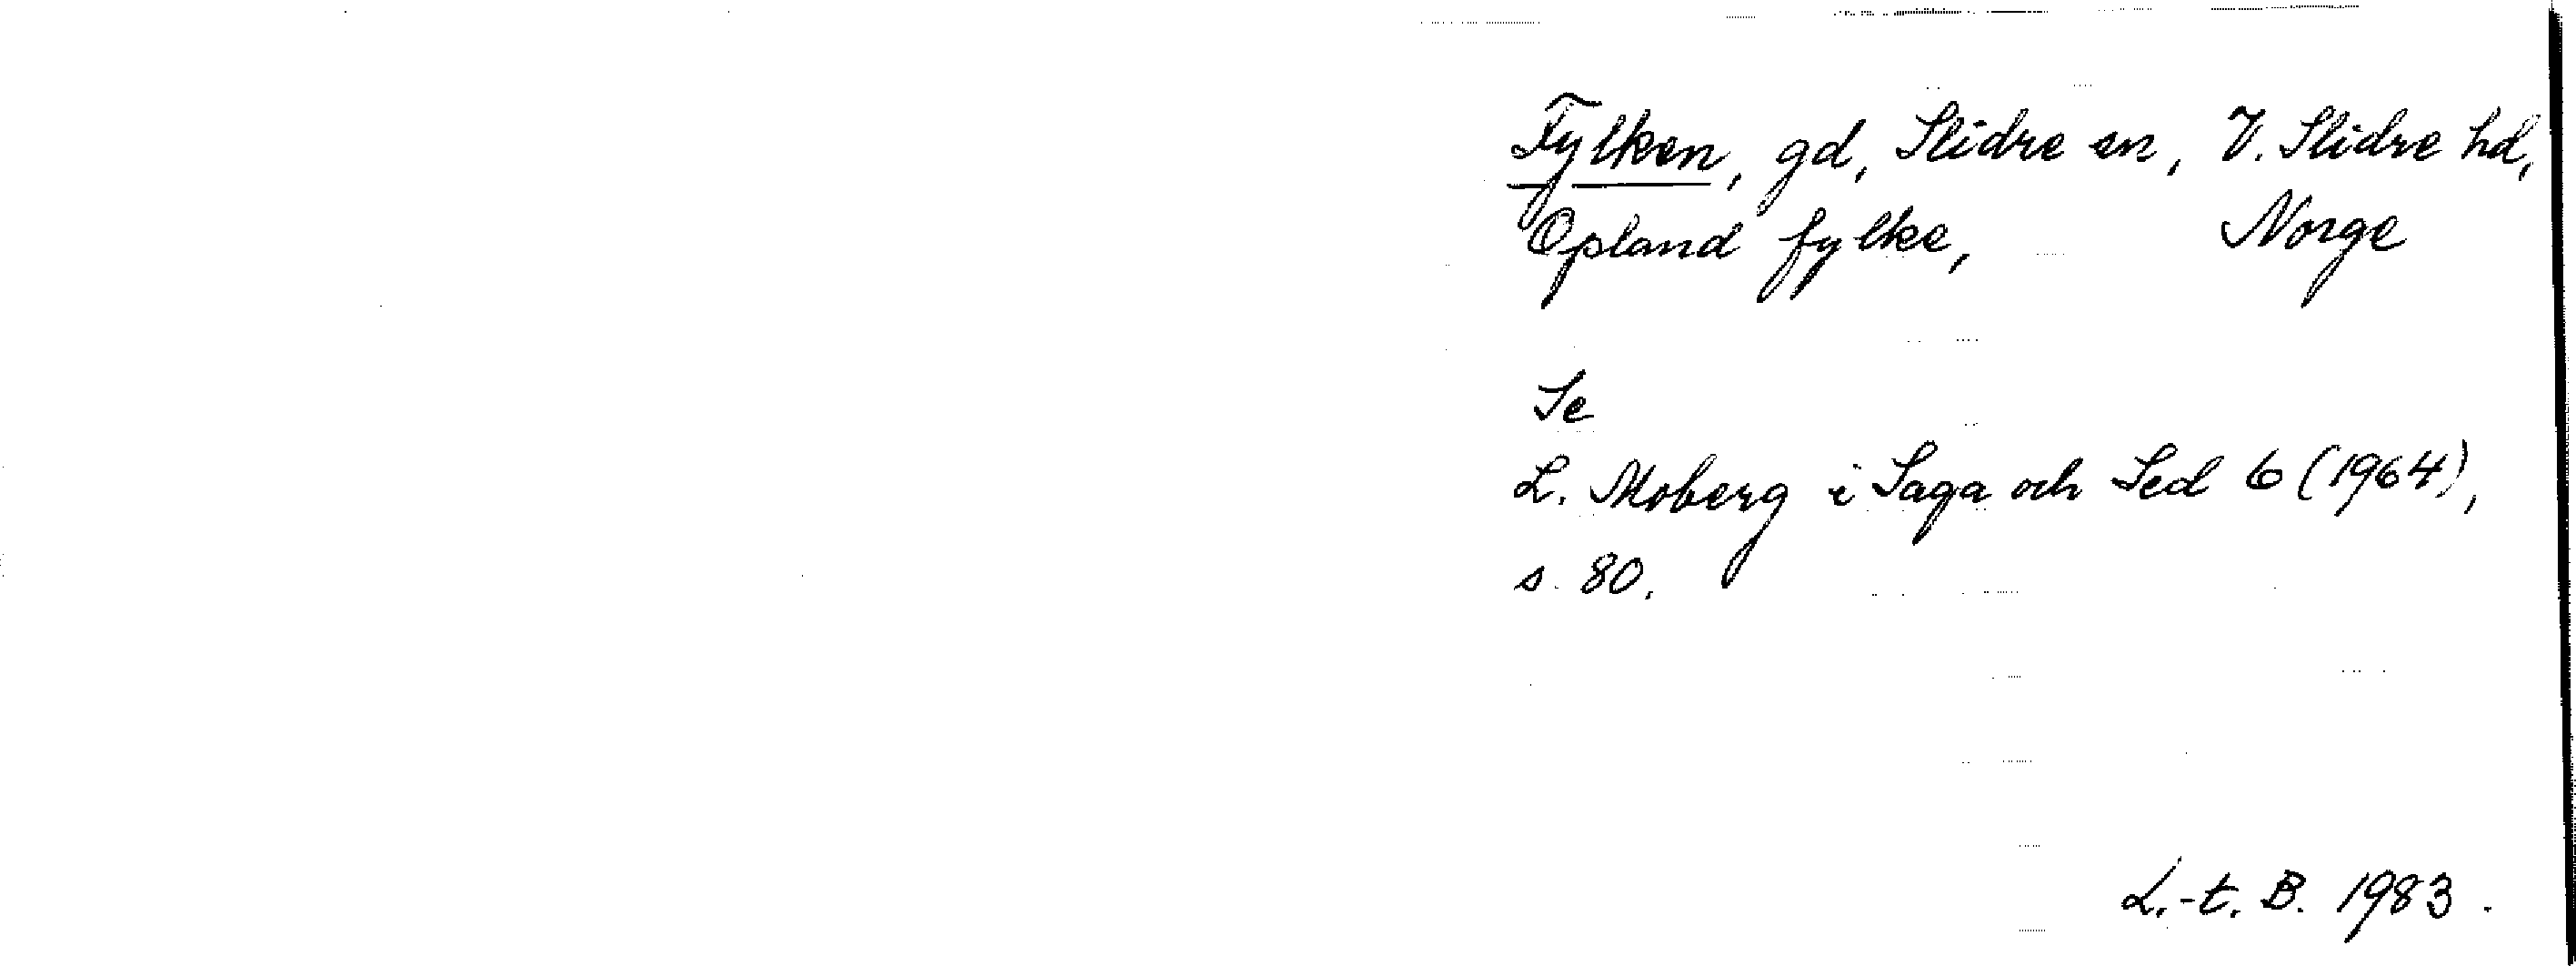 Fylken, gd, Slidre sn, V. Slidre hd,
Opland fylke, Norge
Se
L. Moberg i Saga och Sed 6 (1964),
s. 80.
L.-t. B. 1983.